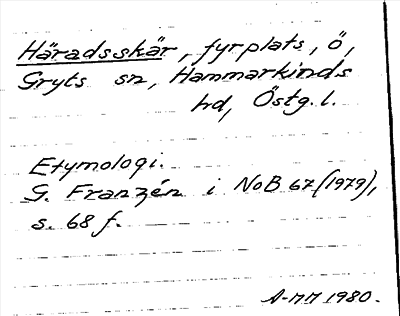 Häradsskär, fyrplats, ö,
Gryts sn, Hammarkinds
hd, Östg.l.
Etymologi.
G. Franzén i NoB 67 (1979),
s. 68 f.
A-MM 1980.